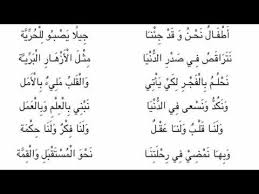 أَطْفَالٌ نَحْنُ وَ قَدْ جِئْنَا جِيلًا يَصْبُو لِلْحُرِّيَّة
نَتَرَاقَصُ فِي صَدْرِ الدُّنْيَا مِثْلَ الْأَزْهَارِ الْبَرِّيَّة
نَحْلُمُ بِالْفَجْرِ لِكَيْ يَأْتِي وَالْقَلْبُ مَلِيءٌ بِالْأَمَل
وَنَكُدُّ وَنَسْعَى فِي الدُّنْيَا نَبْنِي بِالْعِلْمِ وَبِالْعَمَل
وَلَنَا قَلْبٌ وَلَنَا عَقْلٌ وَلَنَا فِكْرٌ وَلَنَا حِكْمَة
وَبِهَا نَمْضِي فِي رِحْلَتِنَا نَحْوَ الْمُسْتَقْبَلِ وَالْقِمَّة